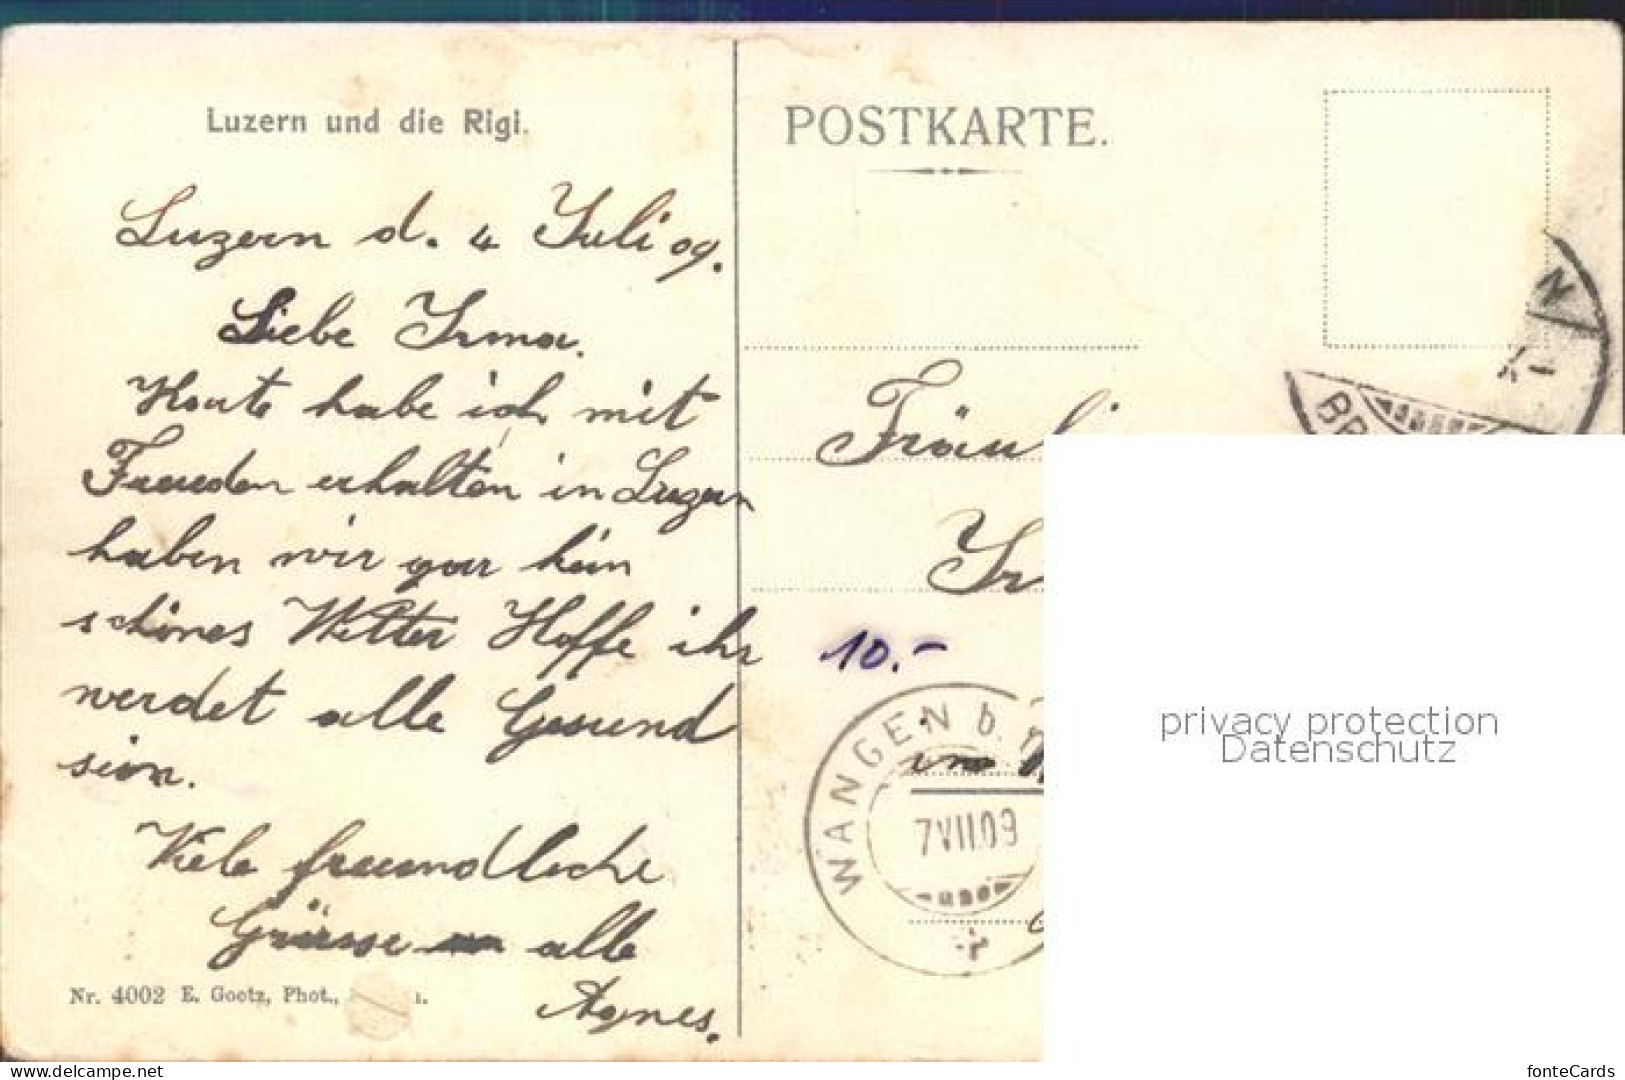 Luzern und die Rigi.
POSTKARTE.
Luzern d. 4 Juli 09.
Liebe Irma.
Heute habe ich mit
Freuden erhalten in Luzern
haben wir gar kein
schönes Wetter Hoffe ihr
werdet alle Gesund
sein.
Viele freundliche
Grüsse alle
Agnes.
Nr. 4002 E. Goetz, Phot.,
Fräul
Ir
10.-
WANGEN b.
7 VII 09
privacy protection
Datenschutz
delcampe.net
fonteCards